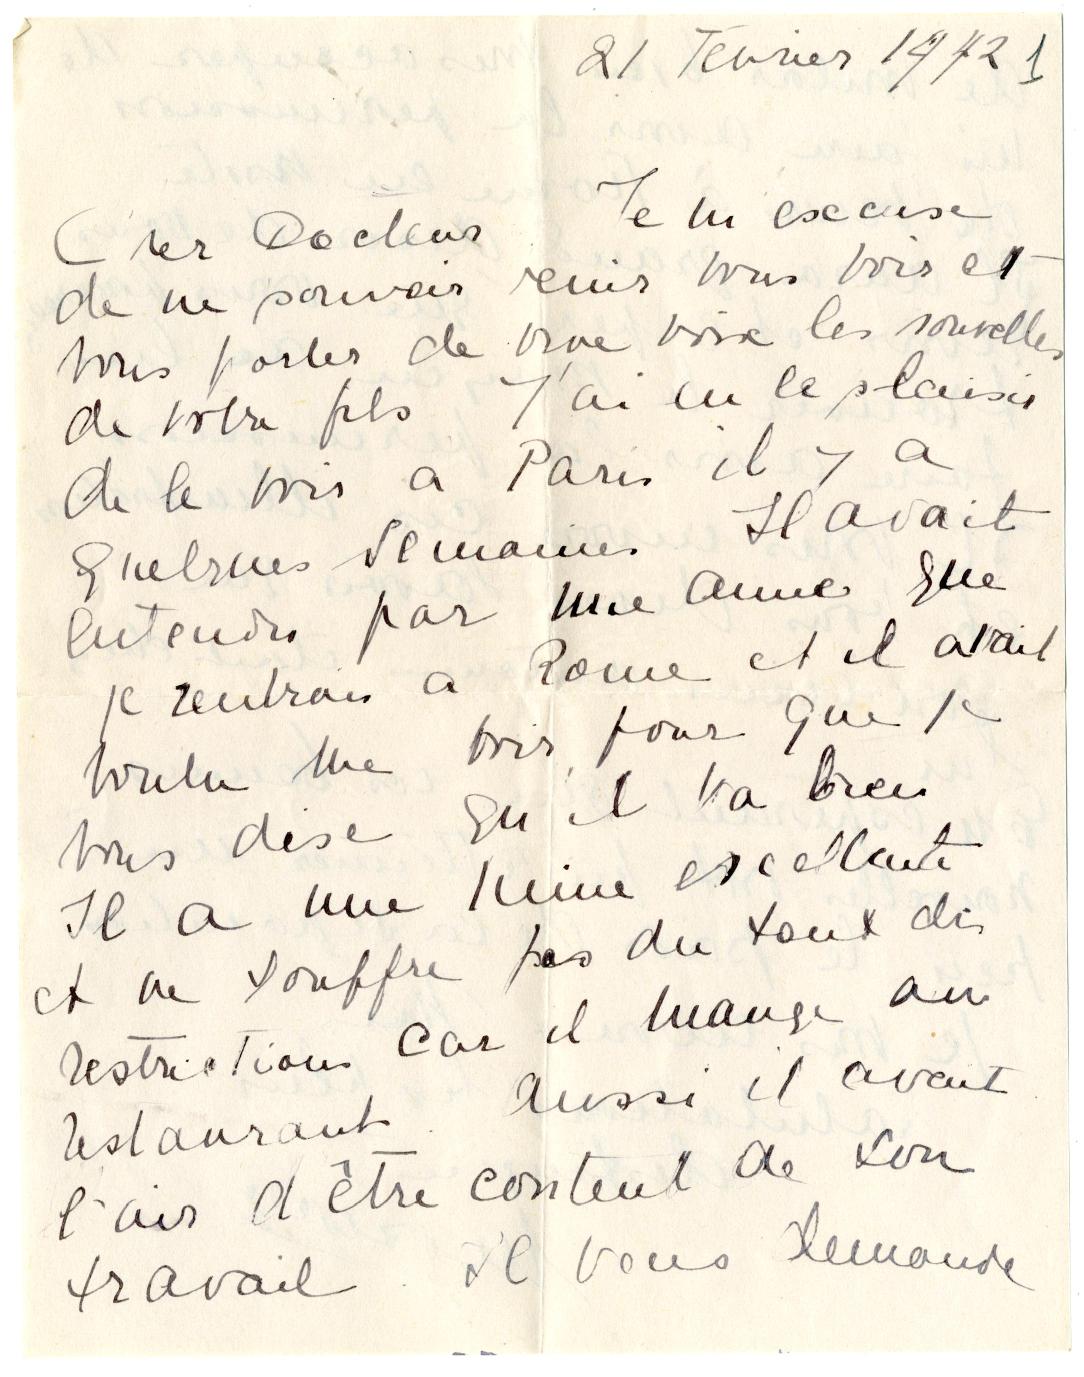 21 Février 1942 1
Cher Docteur Je m'excuse
de ne pouvoir venir vous voir et
vous porter de vive voix les nouvelles
de votre fils J'ai eu le plaisir
de le voir a Paris il y a
quelques semaines Il avait
entendu par une amie que
je rentrais a Rome et il avait
voulu me voir pour que je
vous dise qu'il va bien
Il a une mine excellante
et ne souffre pas du tout des
restrictions car il mange au
restaurant. Aussi il avait
l'air d'être content de son
travail. Il vous demande